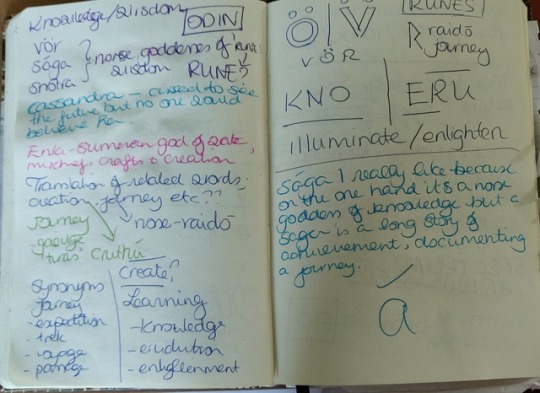 Knowledge/Wisdom
ODIN
Vör
Sága
Snotra
norse goddesses of
wisdom
RUNES
Cassandra - cursed to see
the future but no one would
believe her
Enki - Sumerian god of water,
mischief, crafts & creation
Translation of related words,
creation, journey etc??
Journey
nose-raidō
cruthú
Create?
Synonyms
Journey
- expedition
- trek
- voyage
- passage
Learning
- knowledge
- erudition
- enlightenment
RUNES
Ö V
VÖR
R raidō
journey
KNO
ERU
illuminate/enlighten
Sága I really like because
on the one hand it's a norse
goddess of knowledge but a
saga is a long story of
achievement, documenting
a journey.
a